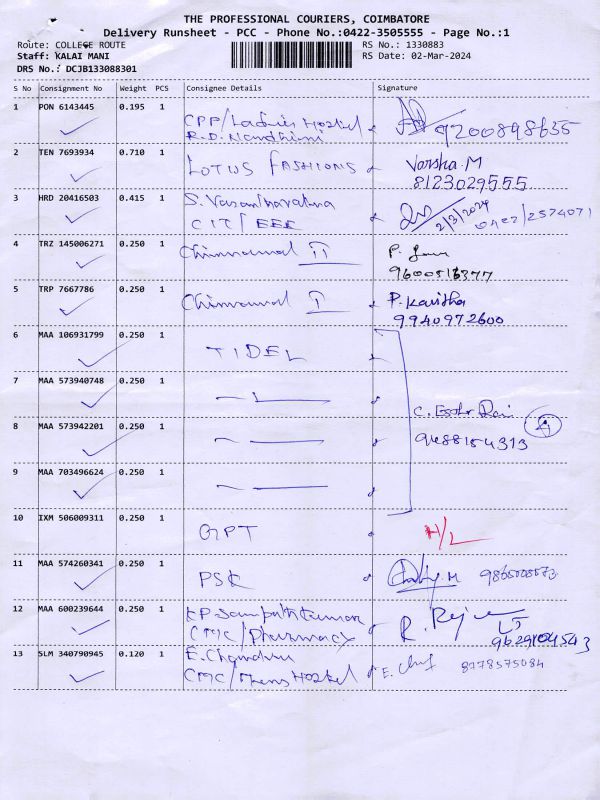 THE PROFESSIONAL COURIERS, COIMBATORE
Delivery Runsheet - PCC - Phone No.:0422-3505555 - Page No.:1
Route: COLLEGE ROUTE
RS No.: 1330883
Staff: KALAI MANI
RS Date: 02-Mar-2024
DRS No.: DCJB133088301
S No Consignment No Weight PCS Consignee Details Signature
1 PON 6143445 0.195 1 CPP/Ladies Hostel 9200898635
R.D. Nandhini
2 TEN 7693934 0.710 1 LOTUS FASHIONS Varsha.M
8123029555
3 HRD 20416503 0.415 1 S. Vasantharatna 2/3/2024 0422/2574071
CIT/EEE
4 TRZ 145006271 0.250 1 Chinnamal II P.
9600516377
5 TRP 7667786 0.250 1 Chinnamal I P. Kavitha
9940972600
6 MAA 106931799 0.250 1 TIDEL
7 MAA 573940748 0.250 1
8 MAA 573942201 0.250 1 C.
9488154313
9 MAA 703496624 0.250 1
10 IXM 506009311 0.250 1 GPT H/L
11 MAA 574260341 0.250 1 PSK M
12 MAA 600239644 0.250 1 KP. Sampathkumar R.
CMC/Pharmacy 9629104543
13 SLM 340790945 0.120 1 E. Chandru E. 8178575084
CMC/Mens Hostel